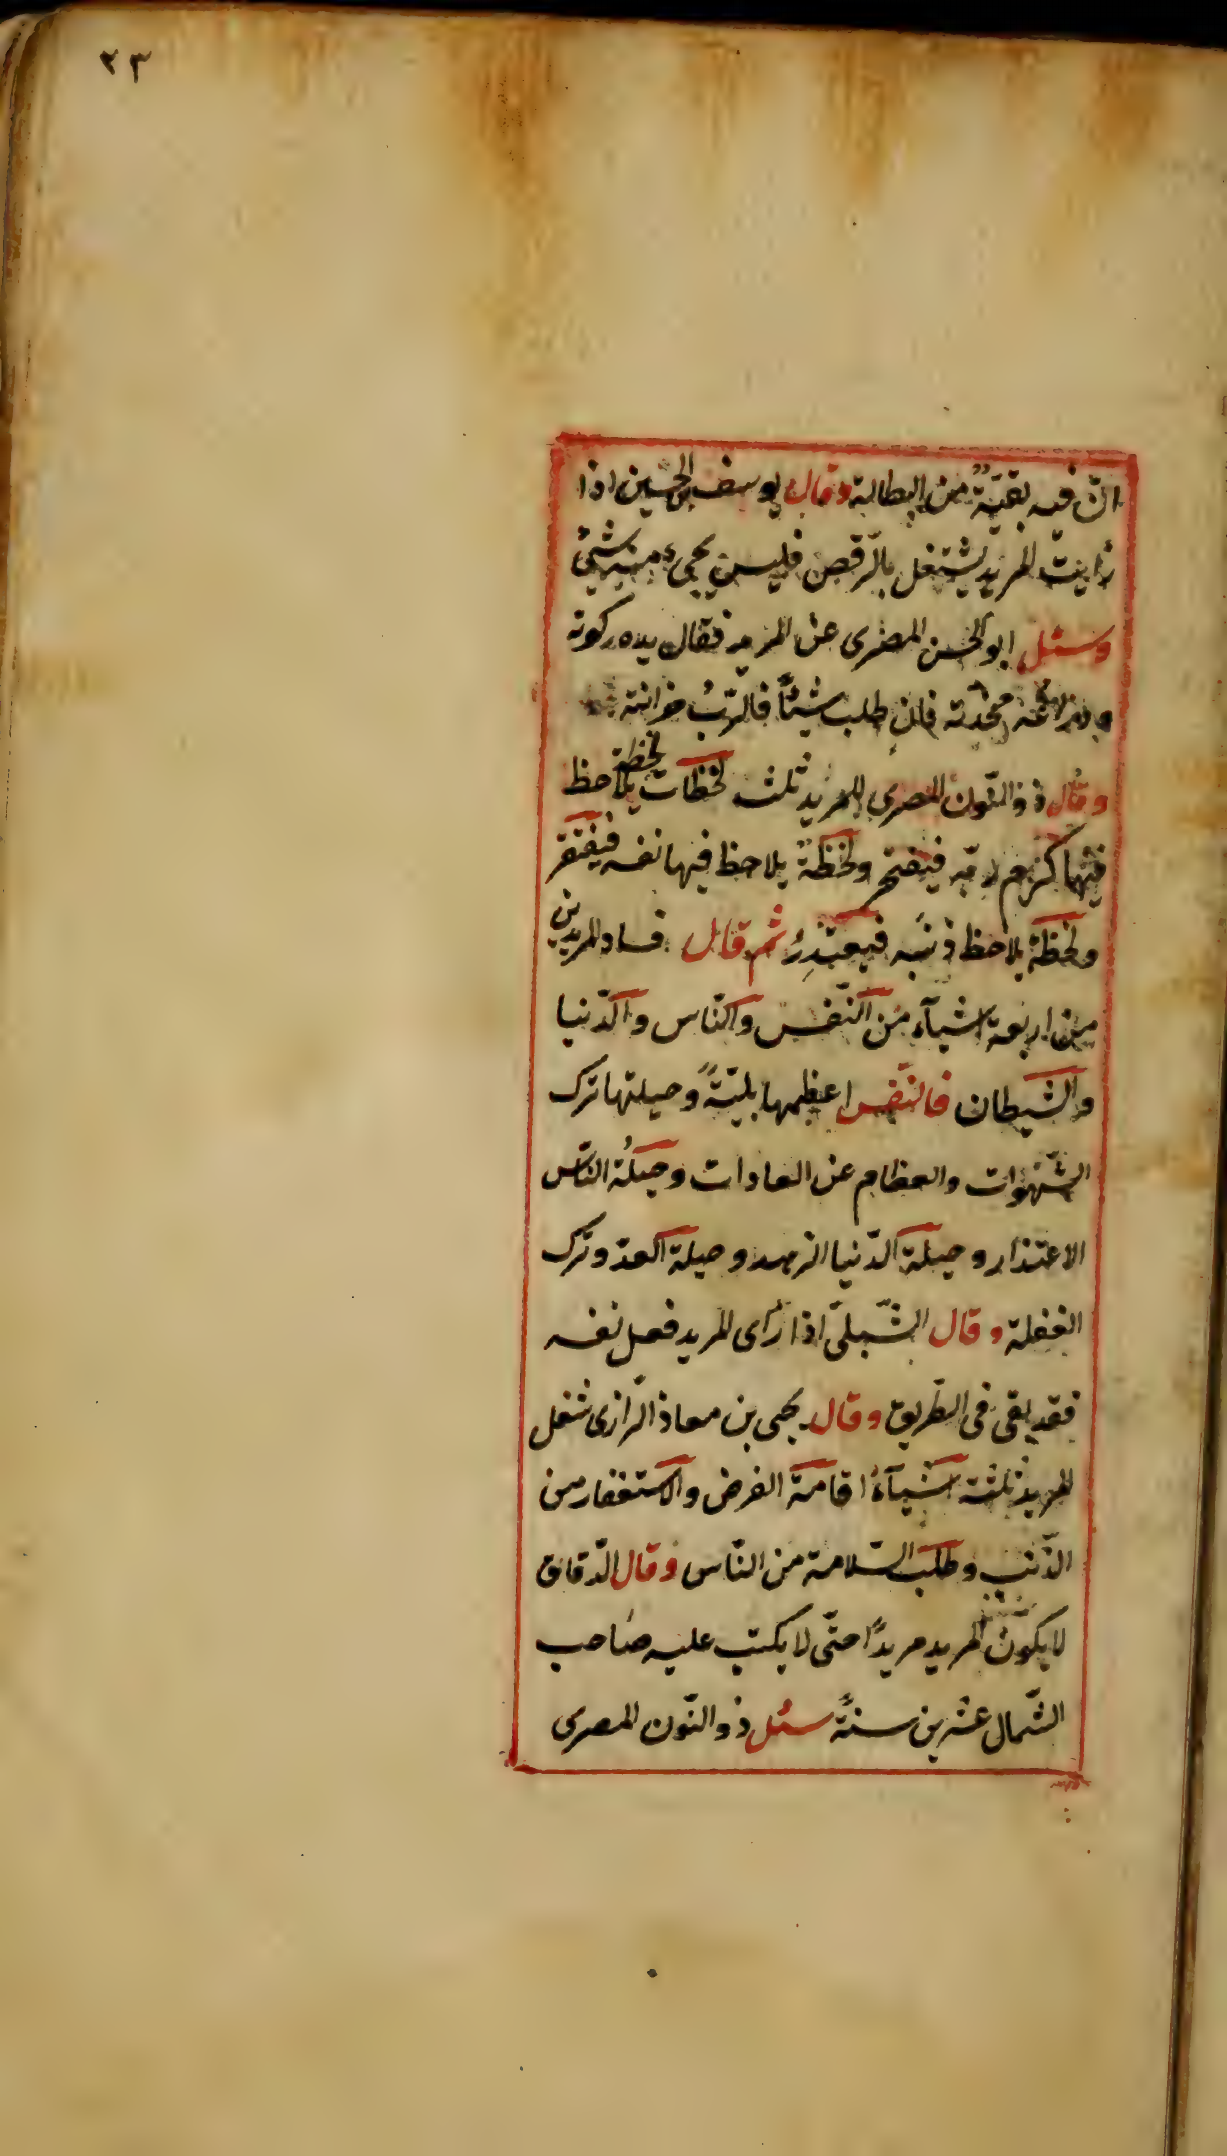 ٢٣
انّ فيه بقيّةٌ من البطالة وقال يوسف بن الحسين اذا
رأيتَ المريد يشتغل بالرّقص فليس يجىء منه شئ
وسئل ابو الحسن المصرى عن المريد فقال يده ركوته
فان طلب شيئًا فالرّبُ خزانته
وقال ذو النّون المصرى للمريد ثلث لحظات لحظة يلاحظ
فيها كرم ربّه فيفتخر ولحظةٌ يلاحظ فيها نفسه فيفتقر
ولحظةٌ يلاحظ ذنبَه فيعتذِرُ ثم قال فساد المريدين
من اربعة اشيآء من النّفس والنّاس والدّنيا
والشيطان فالنّفس اعظمها بليّةً وحيلتها ترك
الشّهوات والعظام عن العادات وحيلَة النّاس
الاعتذار وحيلة الدّنيا الزهد وحيلة العدوّ ترك
الغفلة وقال الشّبلىّ اذا رأى المريد فعل نفسه
فقد بقى فى الطّريق وقال يحيى بن معاذ الرّازى شغل
المريد ثلثة اشيآء اقامة الفرض والاستغفار من
الذّنب وطلب السّلامة من النّاس وقال الدّقاق
لا يكوّن المريد مريدًا حتّى لا يكتب عليه صاحب
الشّمال عشرين سنةً سئل ذو النّون المصرى